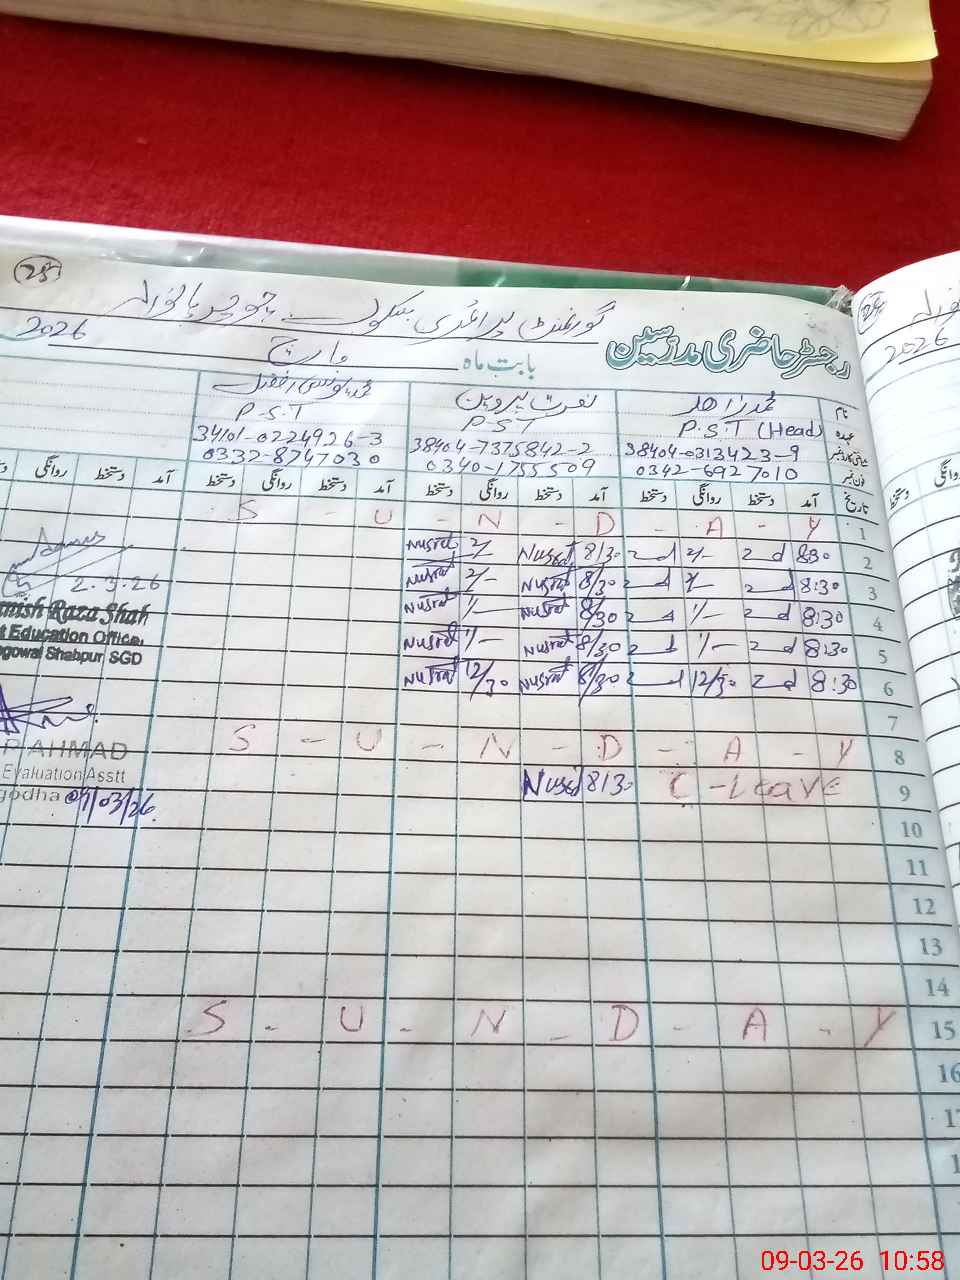 25
گورنمنٹ پرائمری سکول
رجسٹر حاضری مدرسین
بابت ماہ مارچ 2026
2026
نام محمد زاھد نصرت پروین محمد یونس افضل
عہدہ P.S.T (Head) P.S.T P.S.T
شناختی کارڈ نمبر 38404-0313423-9 38404-7375842-2 34101-0224926-3
فون نمبر 0342-6927010 0340-1755509 0332-8747030
تاریخ آمد دستخط روانگی دستخط آمد دستخط روانگی دستخط آمد دستخط روانگی دستخط آمد دستخط روانگی
روانگی دستخط
1 S - U - N - D - A - Y
2 8:30 2/- Nusrat 8/30 Nusrat 2/-
3 8:30 2/- Nusrat 8/30 Nusrat 2/-
4 8:30 1/- Nusrat 8/30 Nusrat 1/-
5 8:30 1/- Nusrat 8/30 Nusrat 1/-
6 8:30 12/30 Nusrat 8/30 Nusrat 12/30
7
8 S - U - N - D - A - Y
9 C-Leave 8/30 Nusrat
10
11
12
13
14
15 S - U - N - D - A - Y
16
2.3.26
anish Raza Shah
t Education Office,
ogowal Shahpur SGD
P AHMAD
Evaluation Asstt
godha 09/03/26
09-03-26 10:58